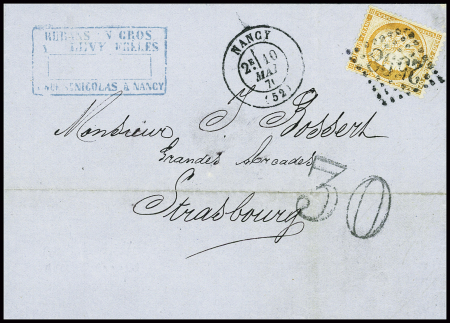 RUBANS EN GROS
LEVY FRÈLES
ST NICOLAS, À NANCY
NANCY
2E 10
MAI
7
(52)
Monsieur J. Bossert
Grandes Arcades
Strasbourg
30